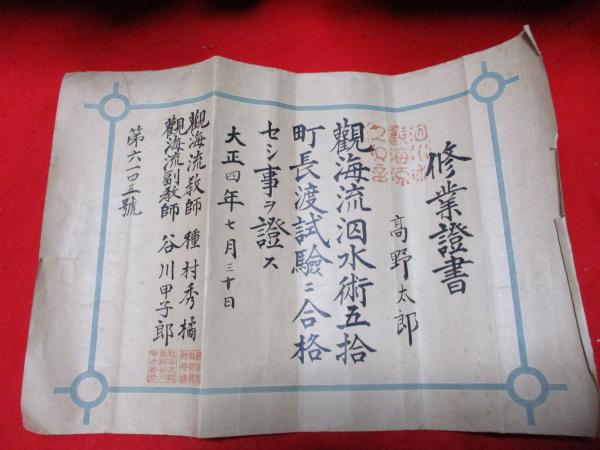 修業證書
高野太郎
觀海流泅水術五拾
町長渡試驗ニ合格
セシ事ヲ證ス
大正四年七月三十日
觀海流教師 種村秀橘
觀海流副教師 谷川甲子郎
第六一四五號